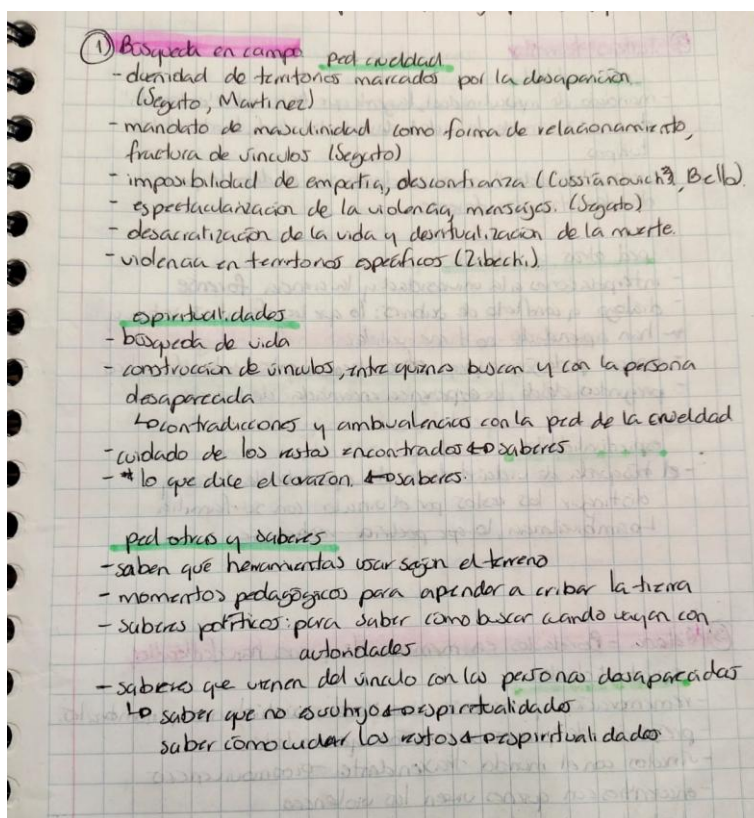 ① Búsqueda en campo ped crueldad
- dueñidad de territorios marcados por la desaparición
(Segato, Martínez)
- mandato de masculinidad como forma de relacionamiento,
fractura de vínculos (Segato)
- imposibilidad de empatía, desconfianza (Cussianovich, Bello).
- espectacularización de la violencia, mensajes. (Segato)
- desacratización de la vida y desritualización de la muerte.
- violencia en territorios específicos (Zibechi).
espiritualidades
- búsqueda de vida
- construcción de vínculos, entre quienes buscan y con la persona
desaparecada
↳ contradicciones y ambivalencias con la ped de la crueldad
- cuidado de los restos encontrados ↔ saberes
- * lo que dice el corazón. ↔ saberes.
ped otras y saberes
- saben qué herramientas usar según el terreno
- momentos pedagógicos para aprender a cribar la tierra
- saberes políticos: para saber cómo buscar cuando vayan con
autoridades
- saberes que vienen del vínculo con las personas desaparecidas
↳ saber que no es su hijo ↔ espiritualidades
saber cómo cuidar los restos ↔ espiritualidades